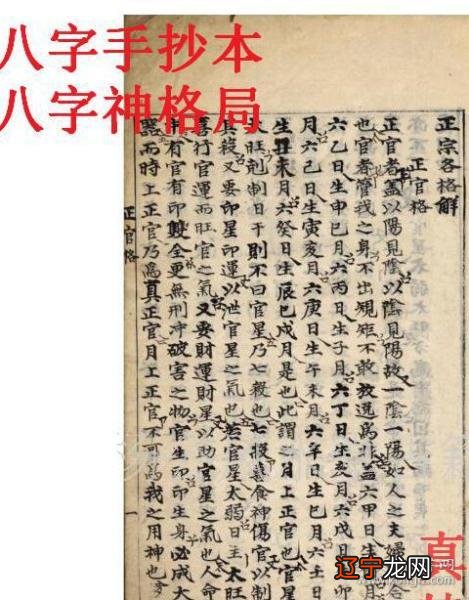 八字手抄本
八字神格局
正宗各格解
正官格
正官者蓋以陽見陰以陰見陽故一陰一陽如人之夫婦
也官者管我之身不出規矩不敢放逸為非盖六甲日生
六乙日生申巳月六丙日生子月六丁日生亥月六戊日
月六己日生寅亥月六庚日生午未月六辛日生巳月六壬日
生丑未月六癸日生辰巳戌月是也此謂之月上正官也官星
太旺剋制日干則不曰官星乃七殺也七殺喜食神傷官以制
其殺又要印星印運以世官星之氣也若官星太弱日主太旺
喜行官運而旺官之氣又要財運財星以助官星之氣也人命
中有官有印雙全更無刑冲破害之物官生印印生身必成大
器而時上正官乃為真正官月上正官不可為我之用神也
正官格
一
真
辽宁龙网